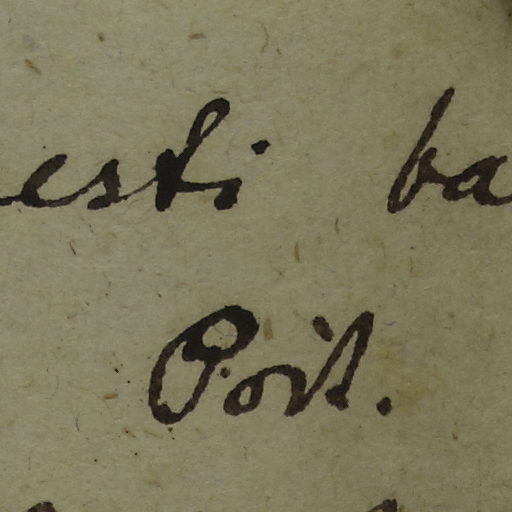 esti ba
Poit.